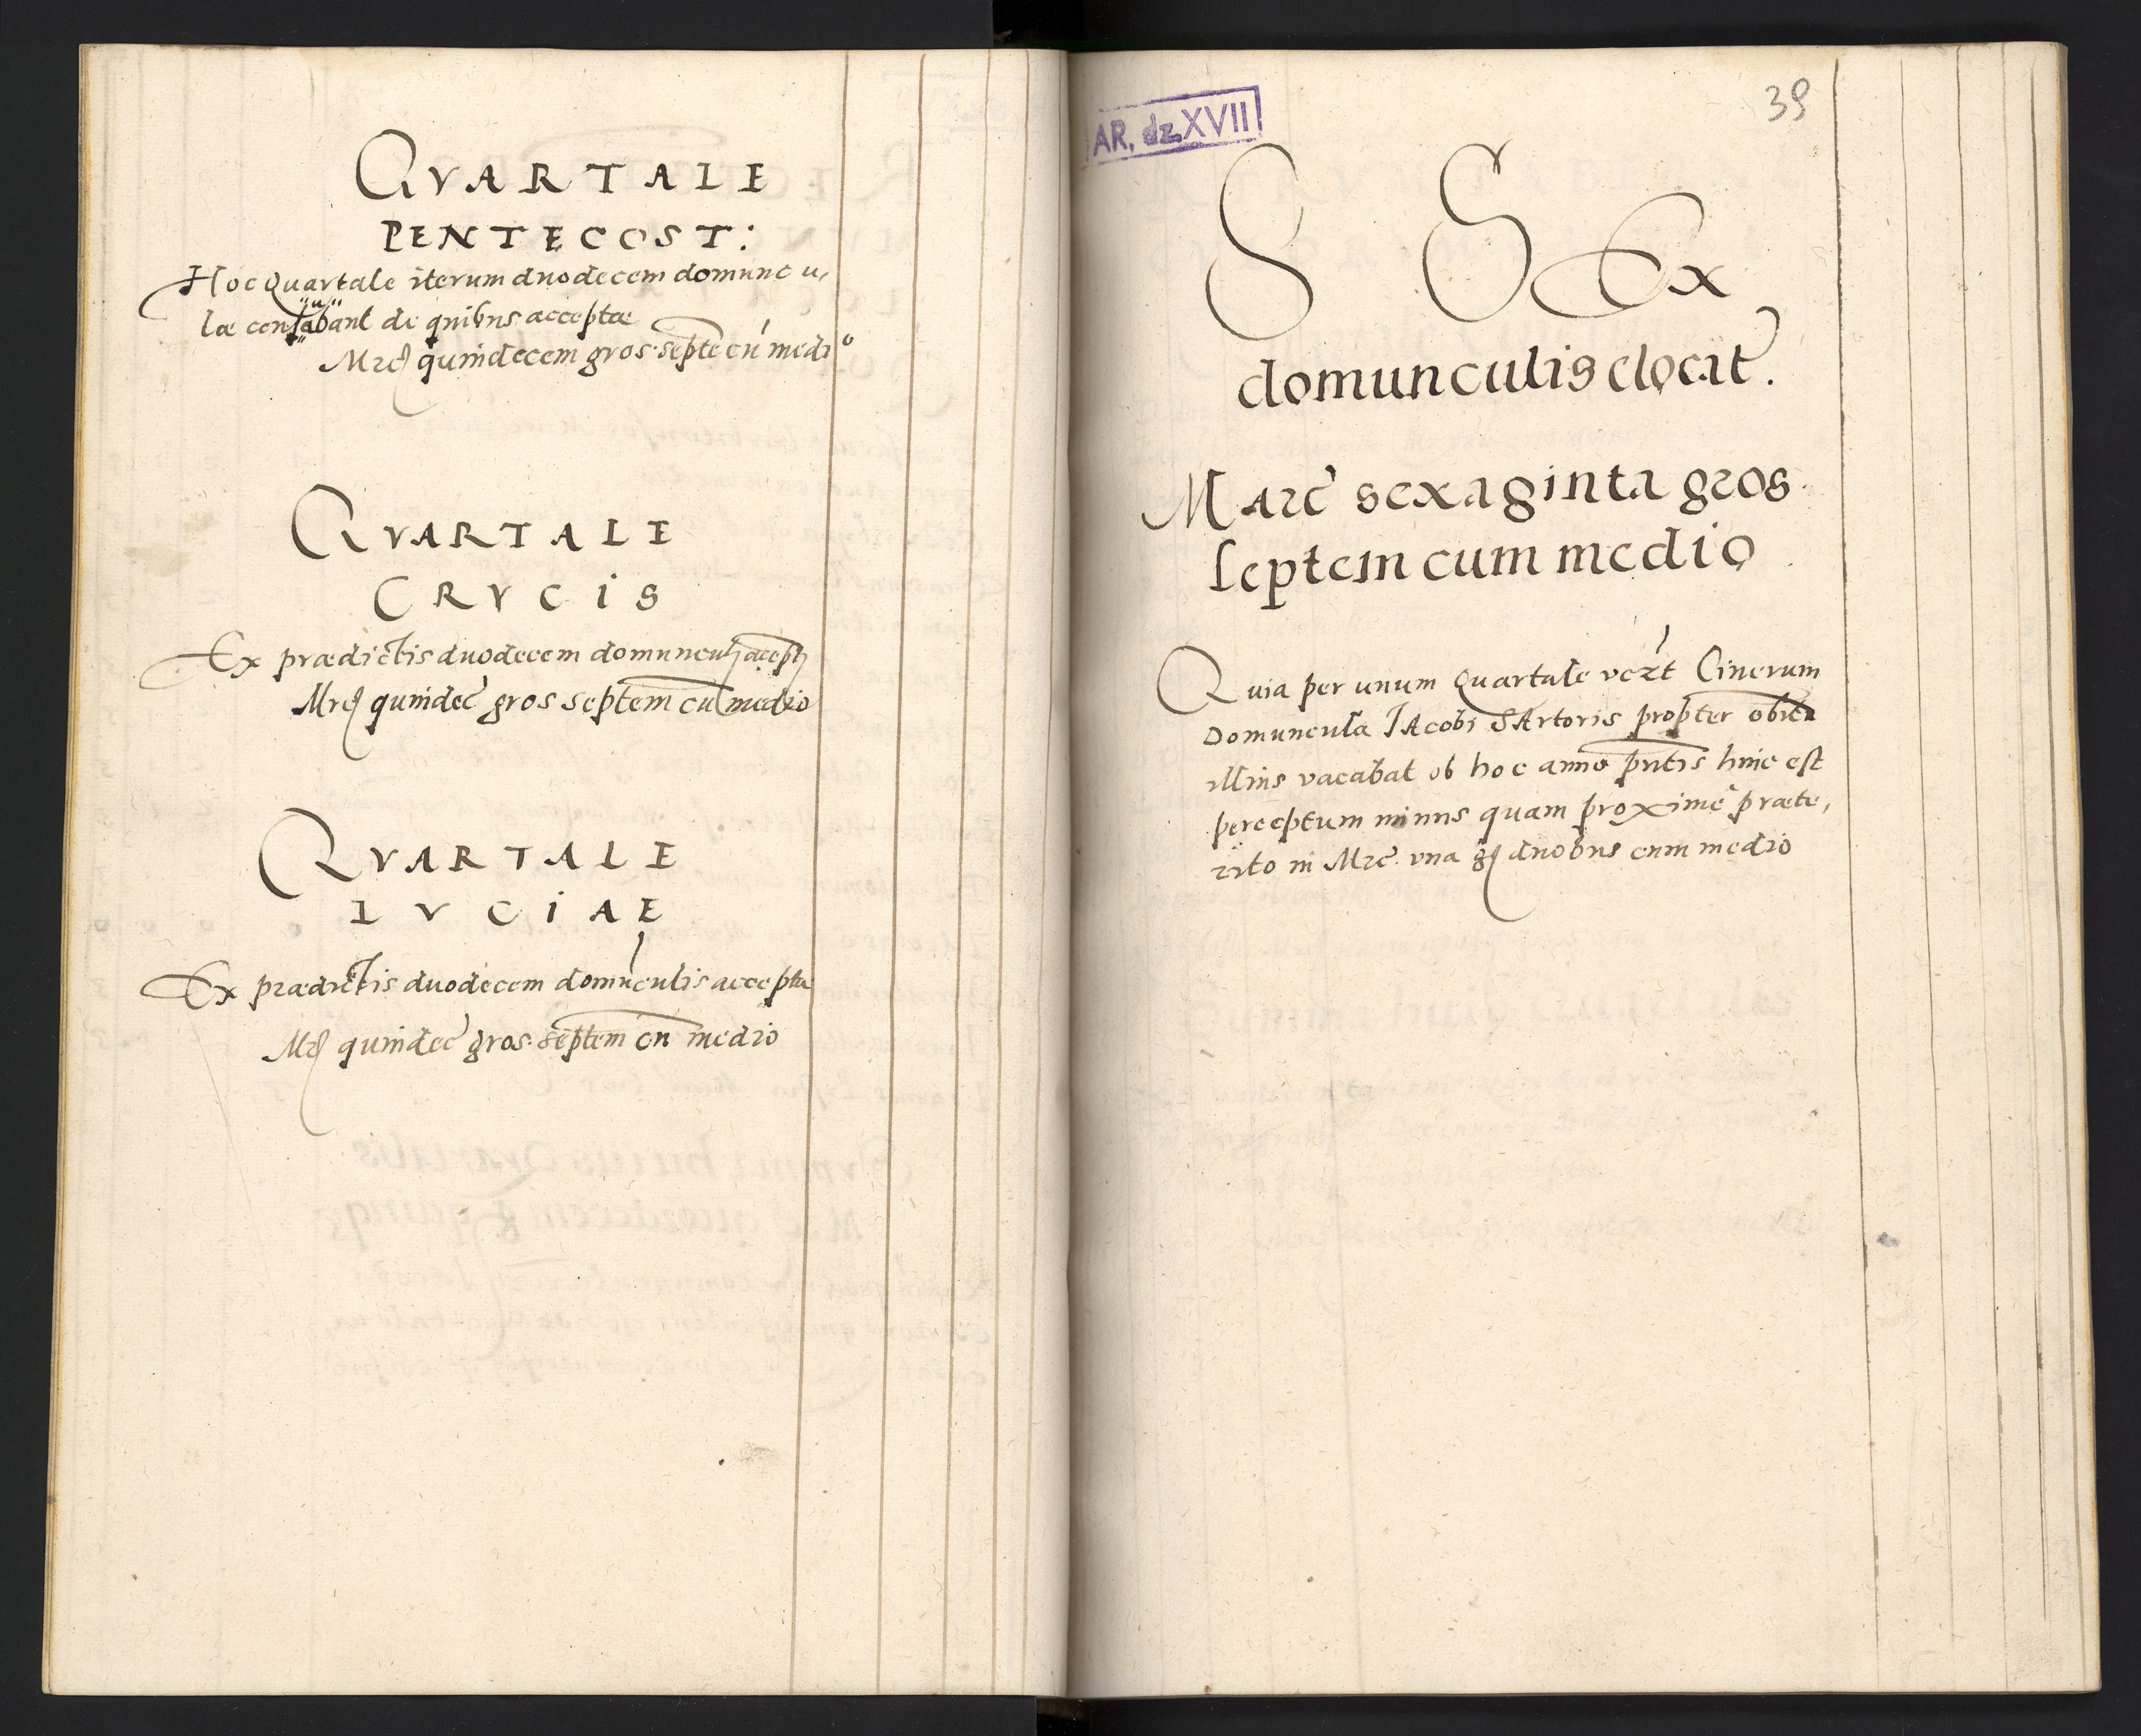 QVARTALE
PENTECOST:
Hoc Quartale iterum duodecem domuncu,
læ censuabant de quibus acceptæ
Mrc quindecem gros. septē cū medio
QVARTALE
CRVCIS
Ex prædictis duodecem domuncul accept
Mrc quindec gros septem cū medio
QVARTALE
LVCIAE
Ex prædictis duodecem domūculis acceptæ
Mr quindec gros. septem cū medio
AR. dz. XVII
39
S S Ex
domunculis elocat.
Marc sexaginta gros.
septem cum medio
Quia per unum Quartale vezt Cinerum
Domuncula IAcobi SArtoris propter obitū
illius vacabat ob hoc anno pntis hinc est
perceptum minus quam proximè præte,
rito in Mrc. vna g duobus cum medio